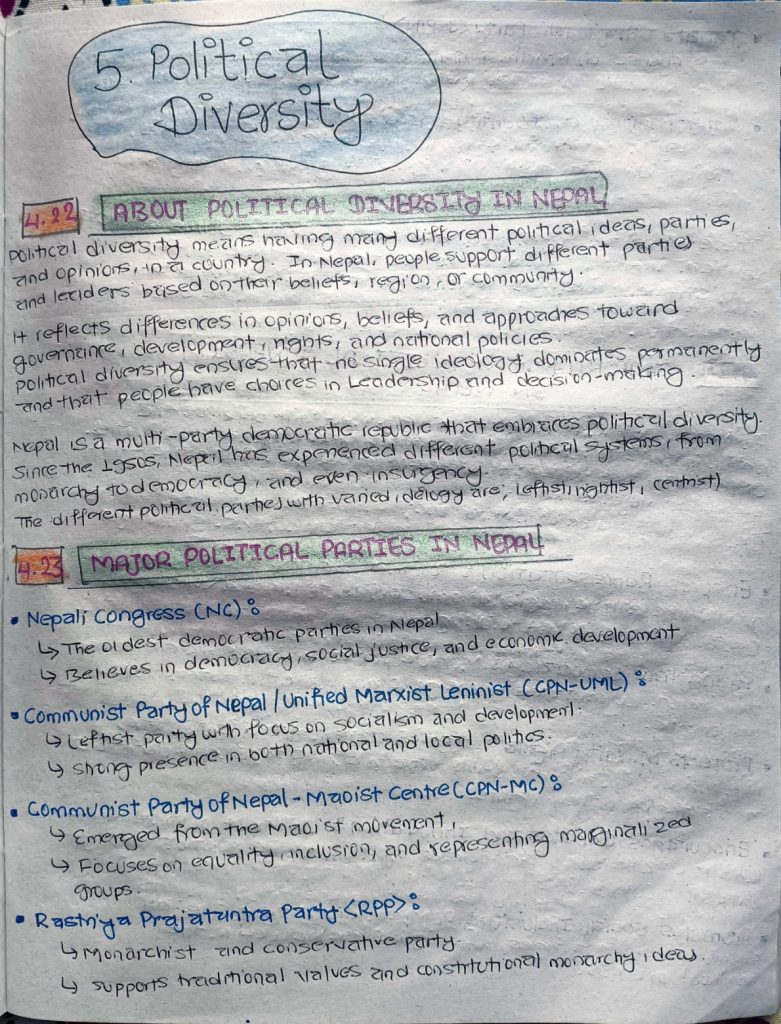 5. Political
Diversity
4.22 ABOUT POLITICAL DIVERSITY IN NEPAL
Political diversity means having many different political ideas, parties,
and opinions, in a country. In Nepal, people support different parties
and leaders based on their beliefs, region, or community.
It reflects differences in opinions, beliefs, and approaches toward
governance, development, rights, and national policies.
Political diversity ensures that no single ideology dominates permanently
and that people have choices in Leadership and decision-making.
Nepal is a multi-party democratic republic that embraces political diversity.
Since the 1950s, Nepal has experienced different political systems, from
monarchy to democracy, and even insurgency.
The different political parties with varied idelogy are; leftist, rightist, centrist)
4.23 MAJOR POLITICAL PARTIES IN NEPAL
• Nepali Congress (NC):
↳ The oldest democratic parties in Nepal
↳ Believes in democracy, social justice, and economic development
• Communist Party of Nepal / Unified Marxist Leninist (CPN-UML):
↳ Leftist party with focus on socialism and development.
↳ strong presence in both national and local politics.
• Communist Party of Nepal - Maoist Centre (CPN-MC):
↳ Emerged from the Maoist movement,
↳ Focuses on equality, inclusion, and representing marginalized
groups.
• Rastriya Prajatantra Party <RPP>:
↳ Monarchist and conservative party.
↳ supports traditional values and constitutional monarchy ideas.